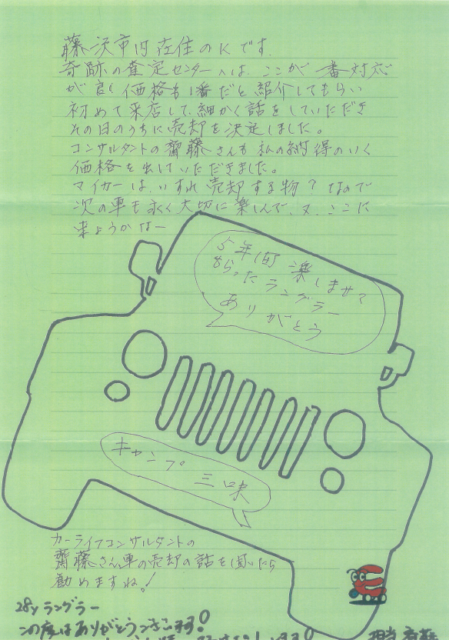 藤沢市内在住のKです。
奇跡の査定センターへは、ここが一番対応
が良く価格も1番だと紹介してもらい
初めて来店して、細かく話をしていただき
その日のうちに売却を決定しました。
コンサルタントの齋藤さんも私の納得のいく
価格を出していただきました。
マイカーは、いずれ売却する物?なので
次の車も永く大切に楽しんで、又、ここに
来ようかなー
5年間楽しませて
もらったラングラー
ありがとう
キャンプ三昧
カーライフコンサルタントの
齋藤さん車の売却の話を聞いたら
勧めますね!
28y ラングラー
この度はありがとうございます!
担当 斉藤